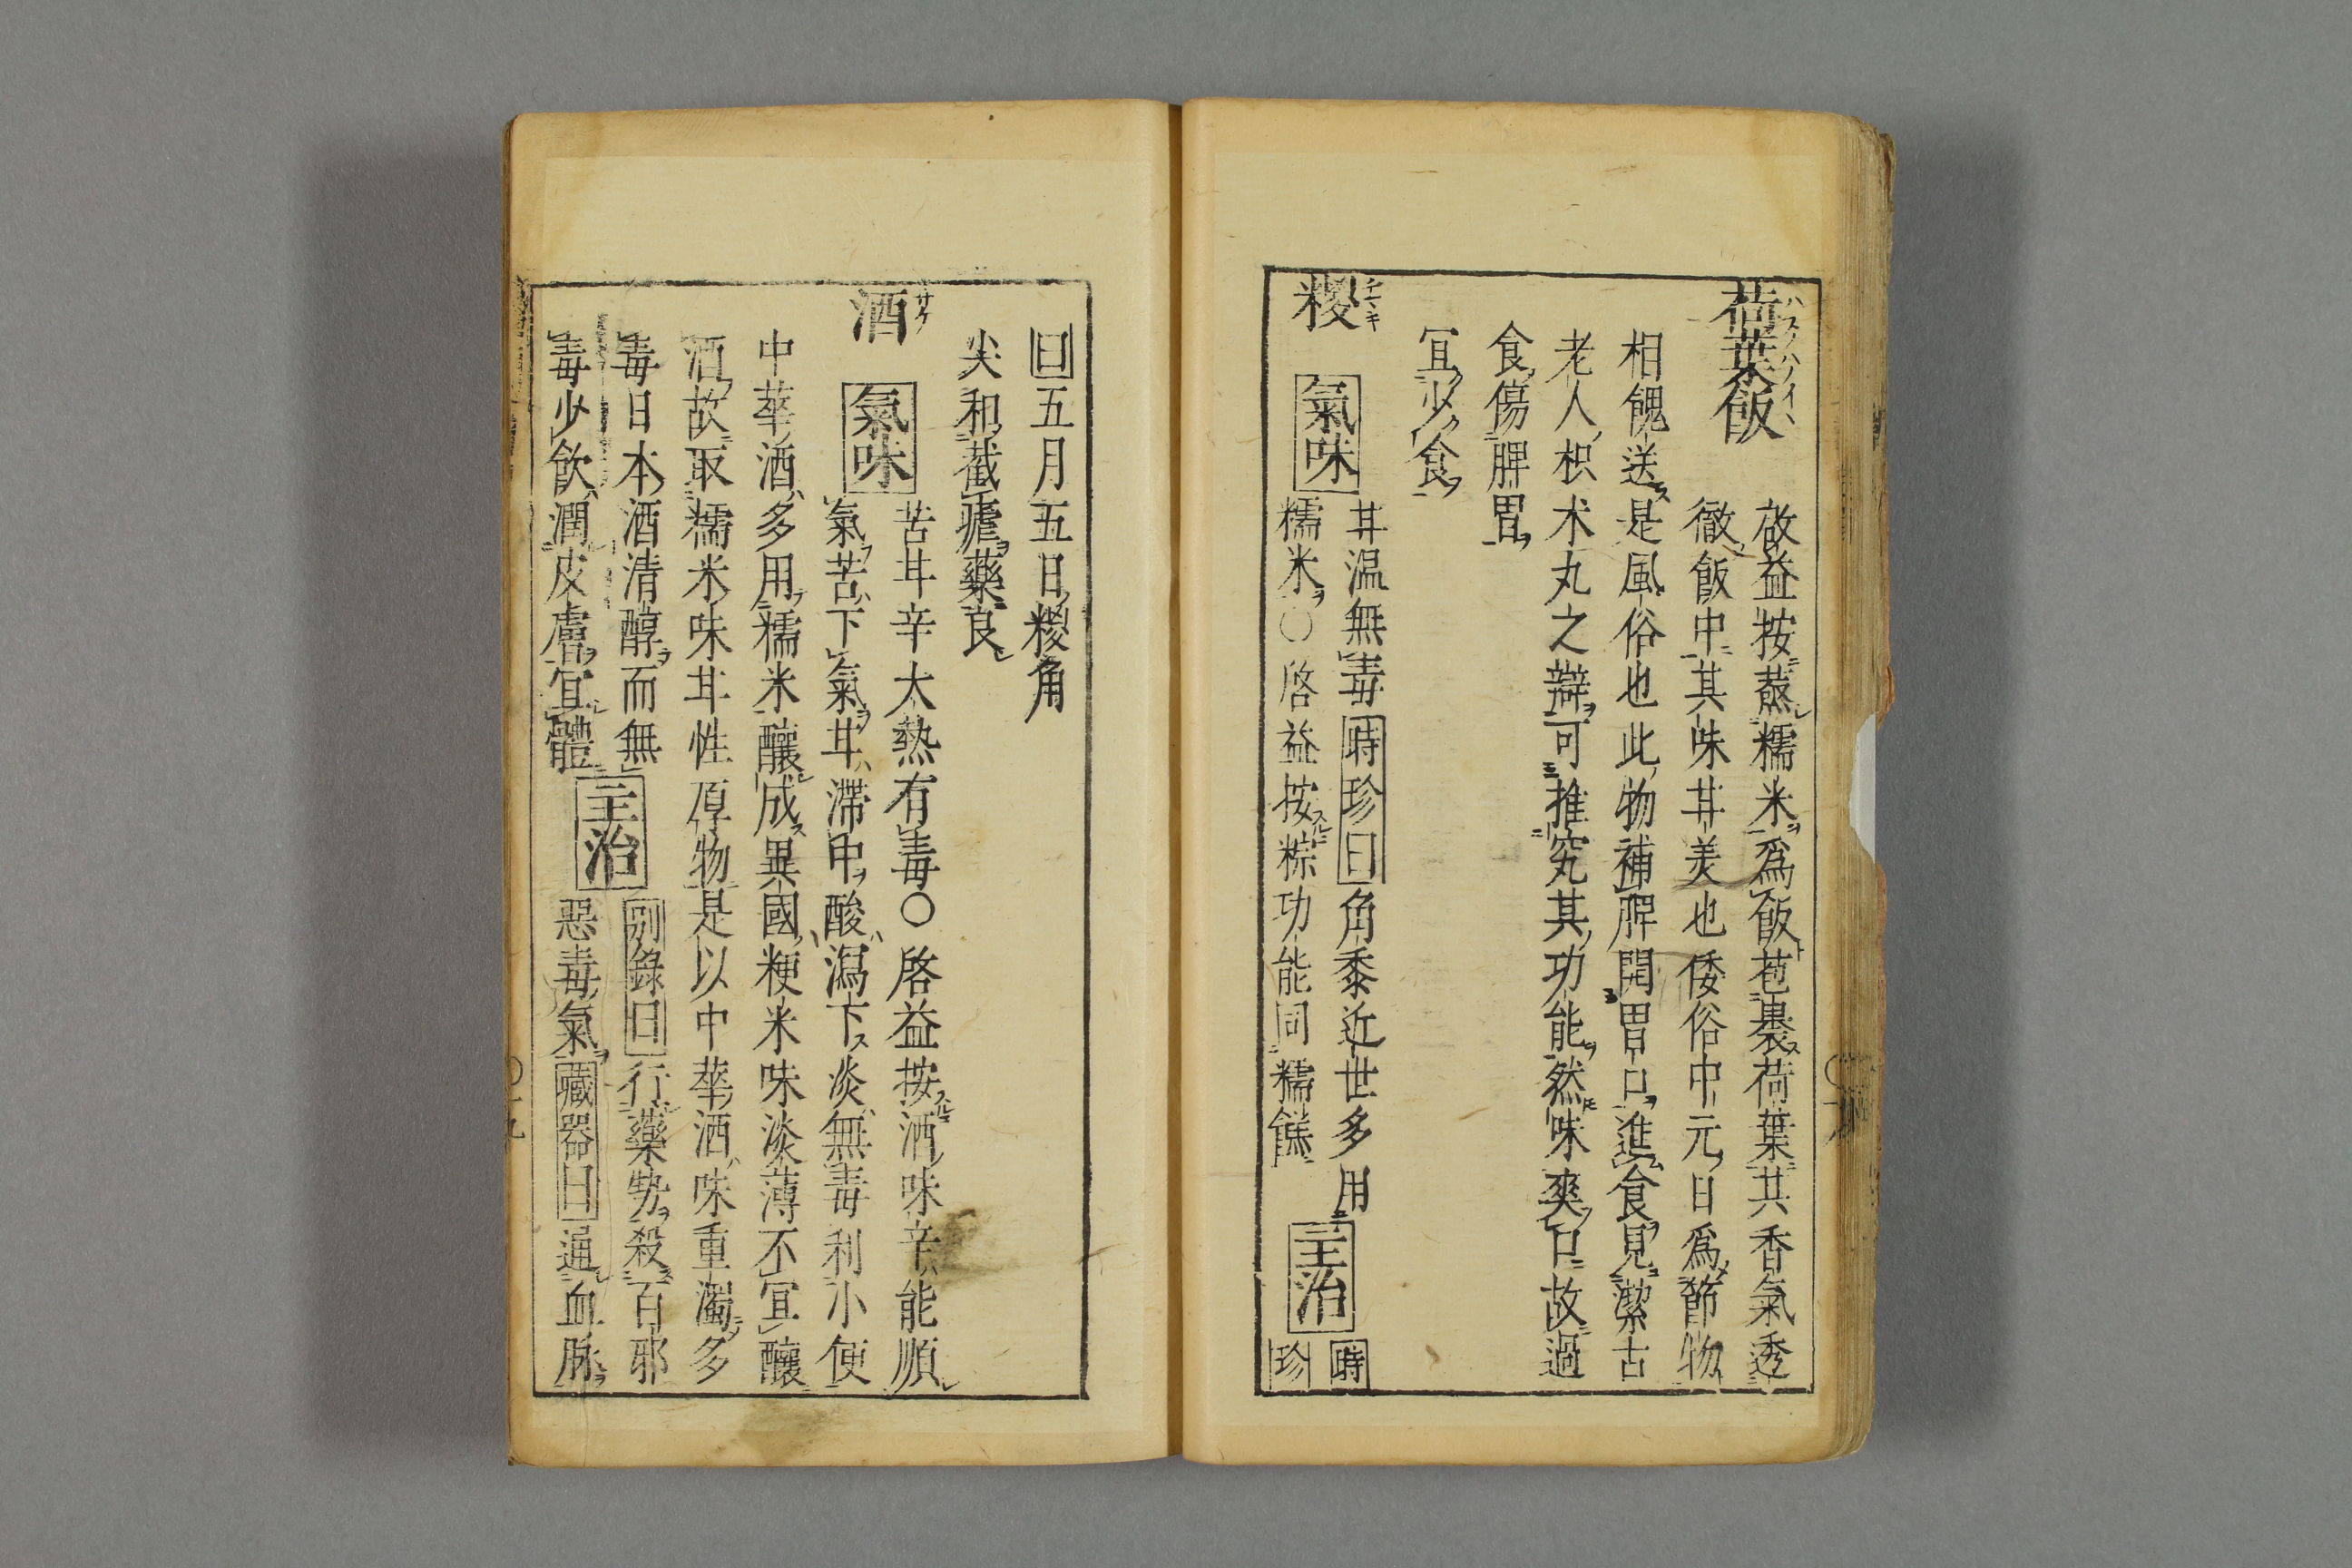 荷葉飯 ハスノハノイヽ
啓益按蒸糯米爲飯苞裹荷葉其香氣透
徹飯中其味甘美也倭俗中元日爲節物
相餽送是風俗也此物補脾開胃口進食見潔古
老人枳朮丸之辯可推究其功能然味爽口故過
食傷脾胃
宜少食
糉 チマキ
氣味
甘温無毒時珍曰角黍近世多用
糯米○啓益按粽功能同糯餻
主治
時
珍
曰五月五日糉角
尖和截瘧藥良
酒 サケ
氣味
苦甘辛大熱有毒○啓益按酒味辛能順
氣苦下氣甘滯中酸瀉下淡無毒利小便
中華酒多用糯米釀成異國粳米味淡薄不宜釀
酒故取糯米味甘性厚物是以中華酒味重濁多
毒日本酒清醇而無
毒少飲潤皮膚宜體
主治
別錄曰行藥勢殺百邪
惡毒氣藏器曰通血脉